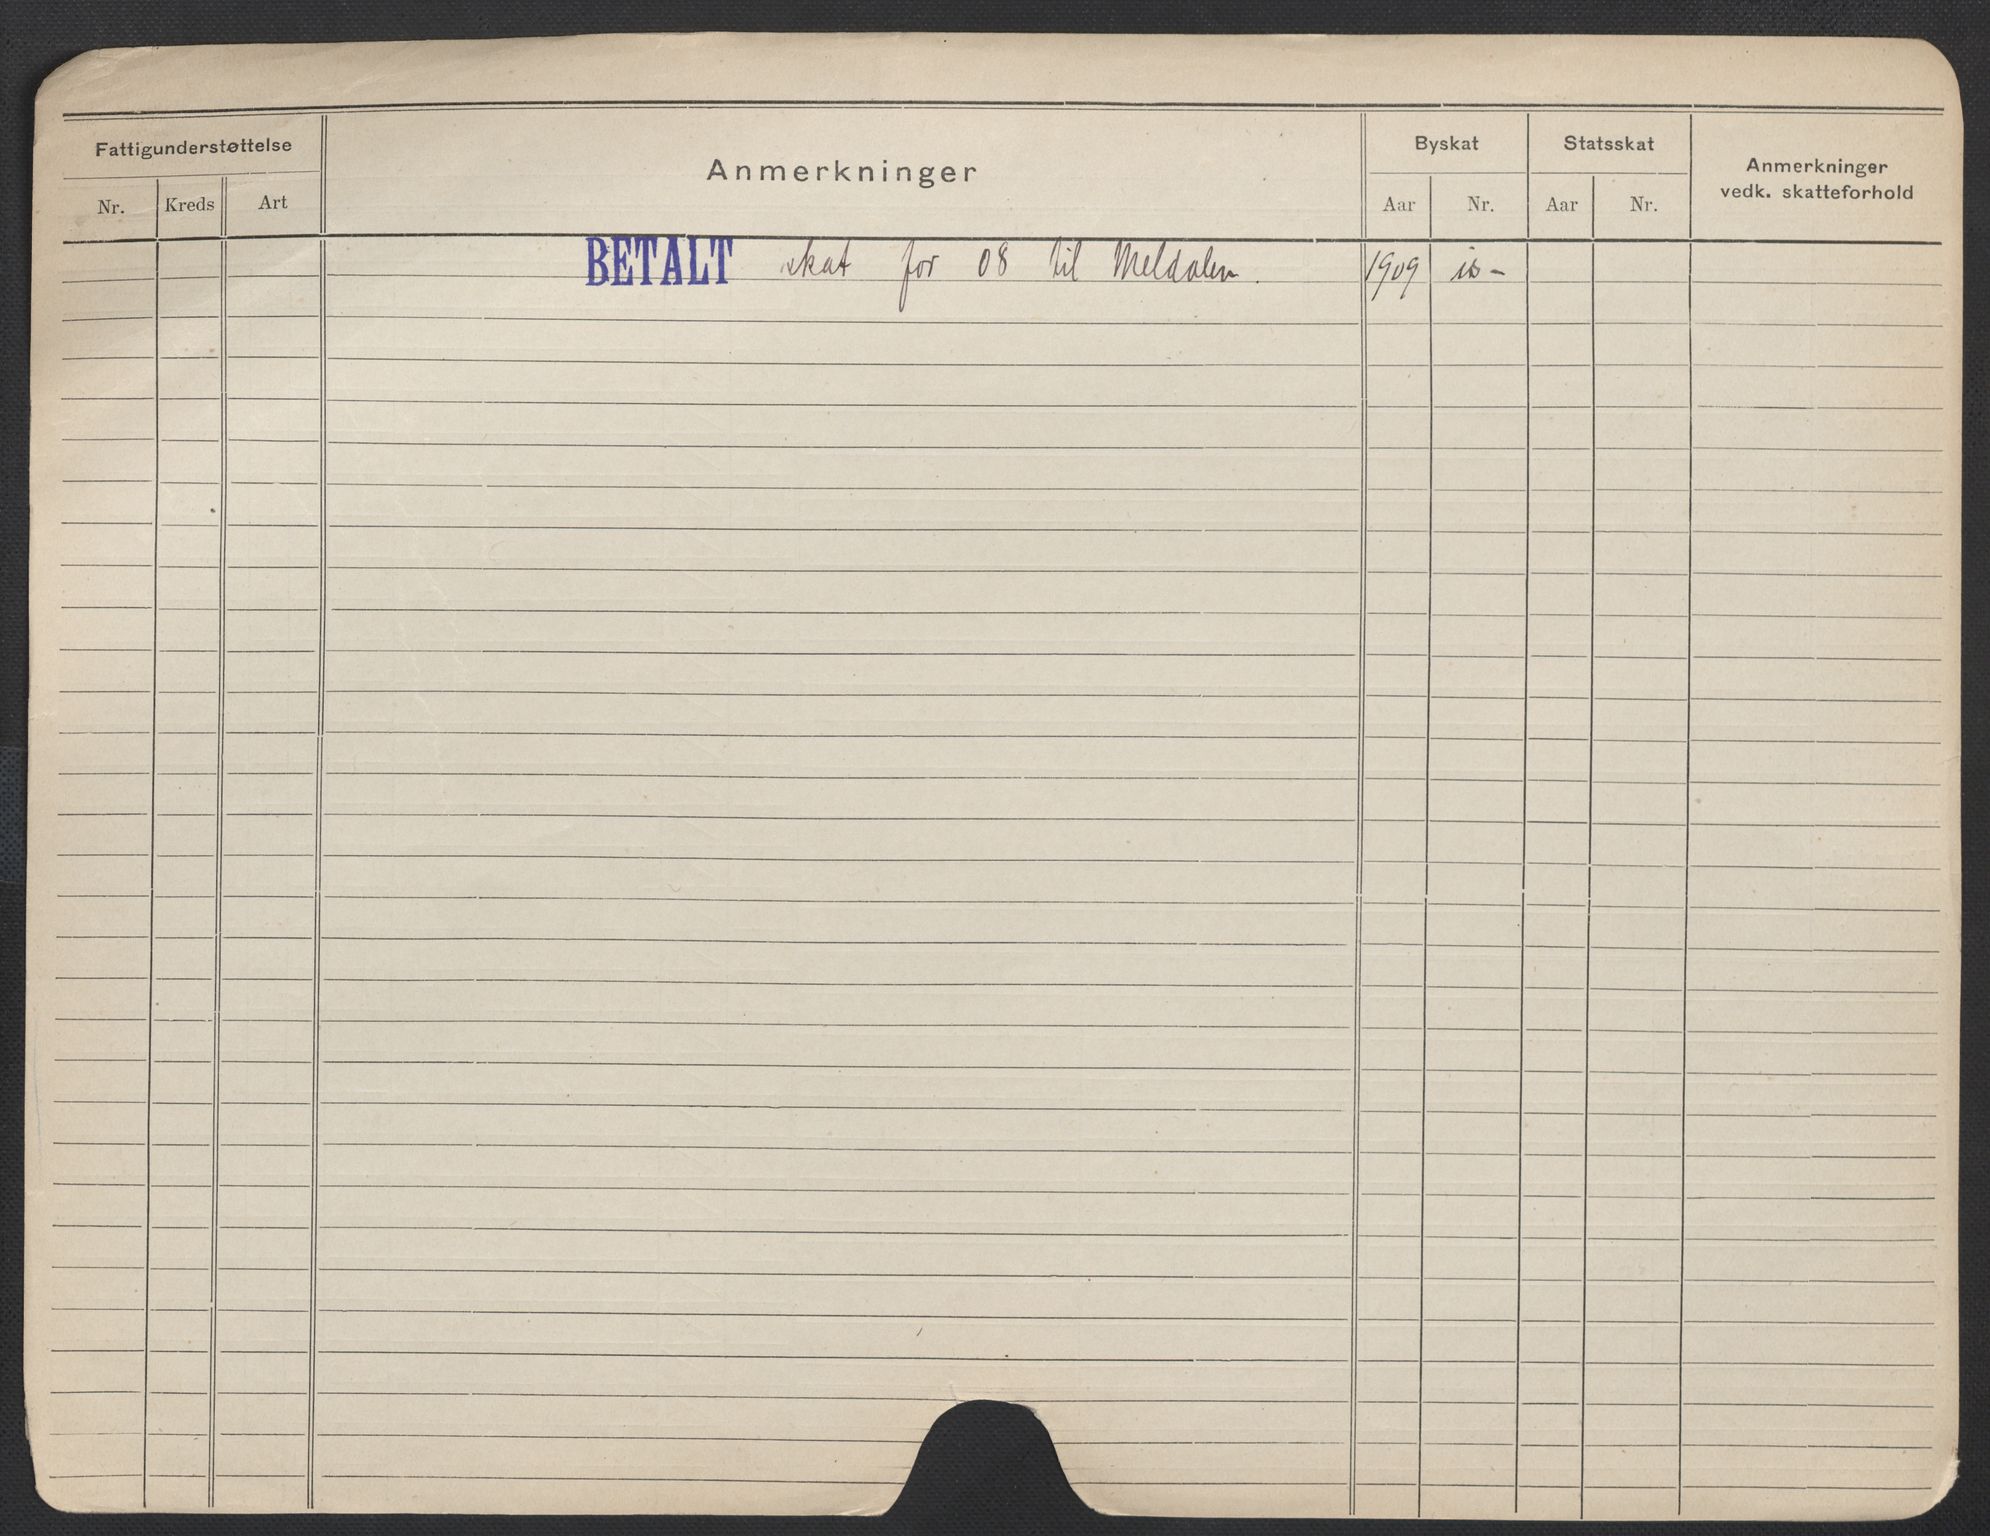 Fattigunderstøttelse Anmerkninger Byskat Statsskat Anmerkninger vedk. skatteforhold
Nr. Kreds Art Aar Nr. Aar Nr.
BETALT skat for 08 til Meldalen. 1909